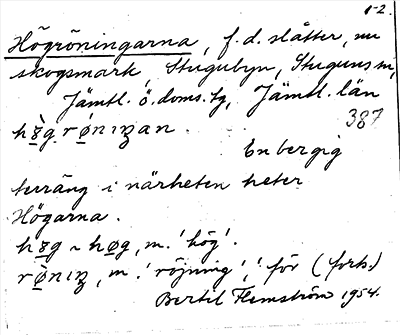 1-2.
Högröningarna, f.d. slåtter, nu
skogsmark, Stugubyn, Stuguns sn,
Jämtl. ö. doms. tg, Jämtl. län
387
hø̀g rø̀nıŋan.
En bergig
terräng i närheten heter
Högarna.
høg ~ høg, m. 'hög'.
rø̀nıŋ, m. 'röjning', 'för (fork.)
Bertil Flemström 1954.